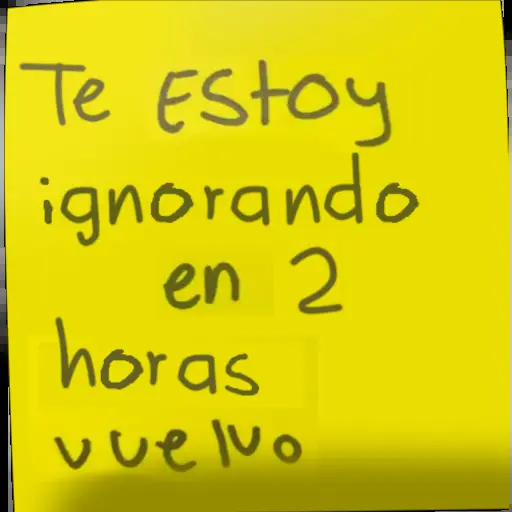 Te Estoy
ignorando
en 2
horas
vuelvo